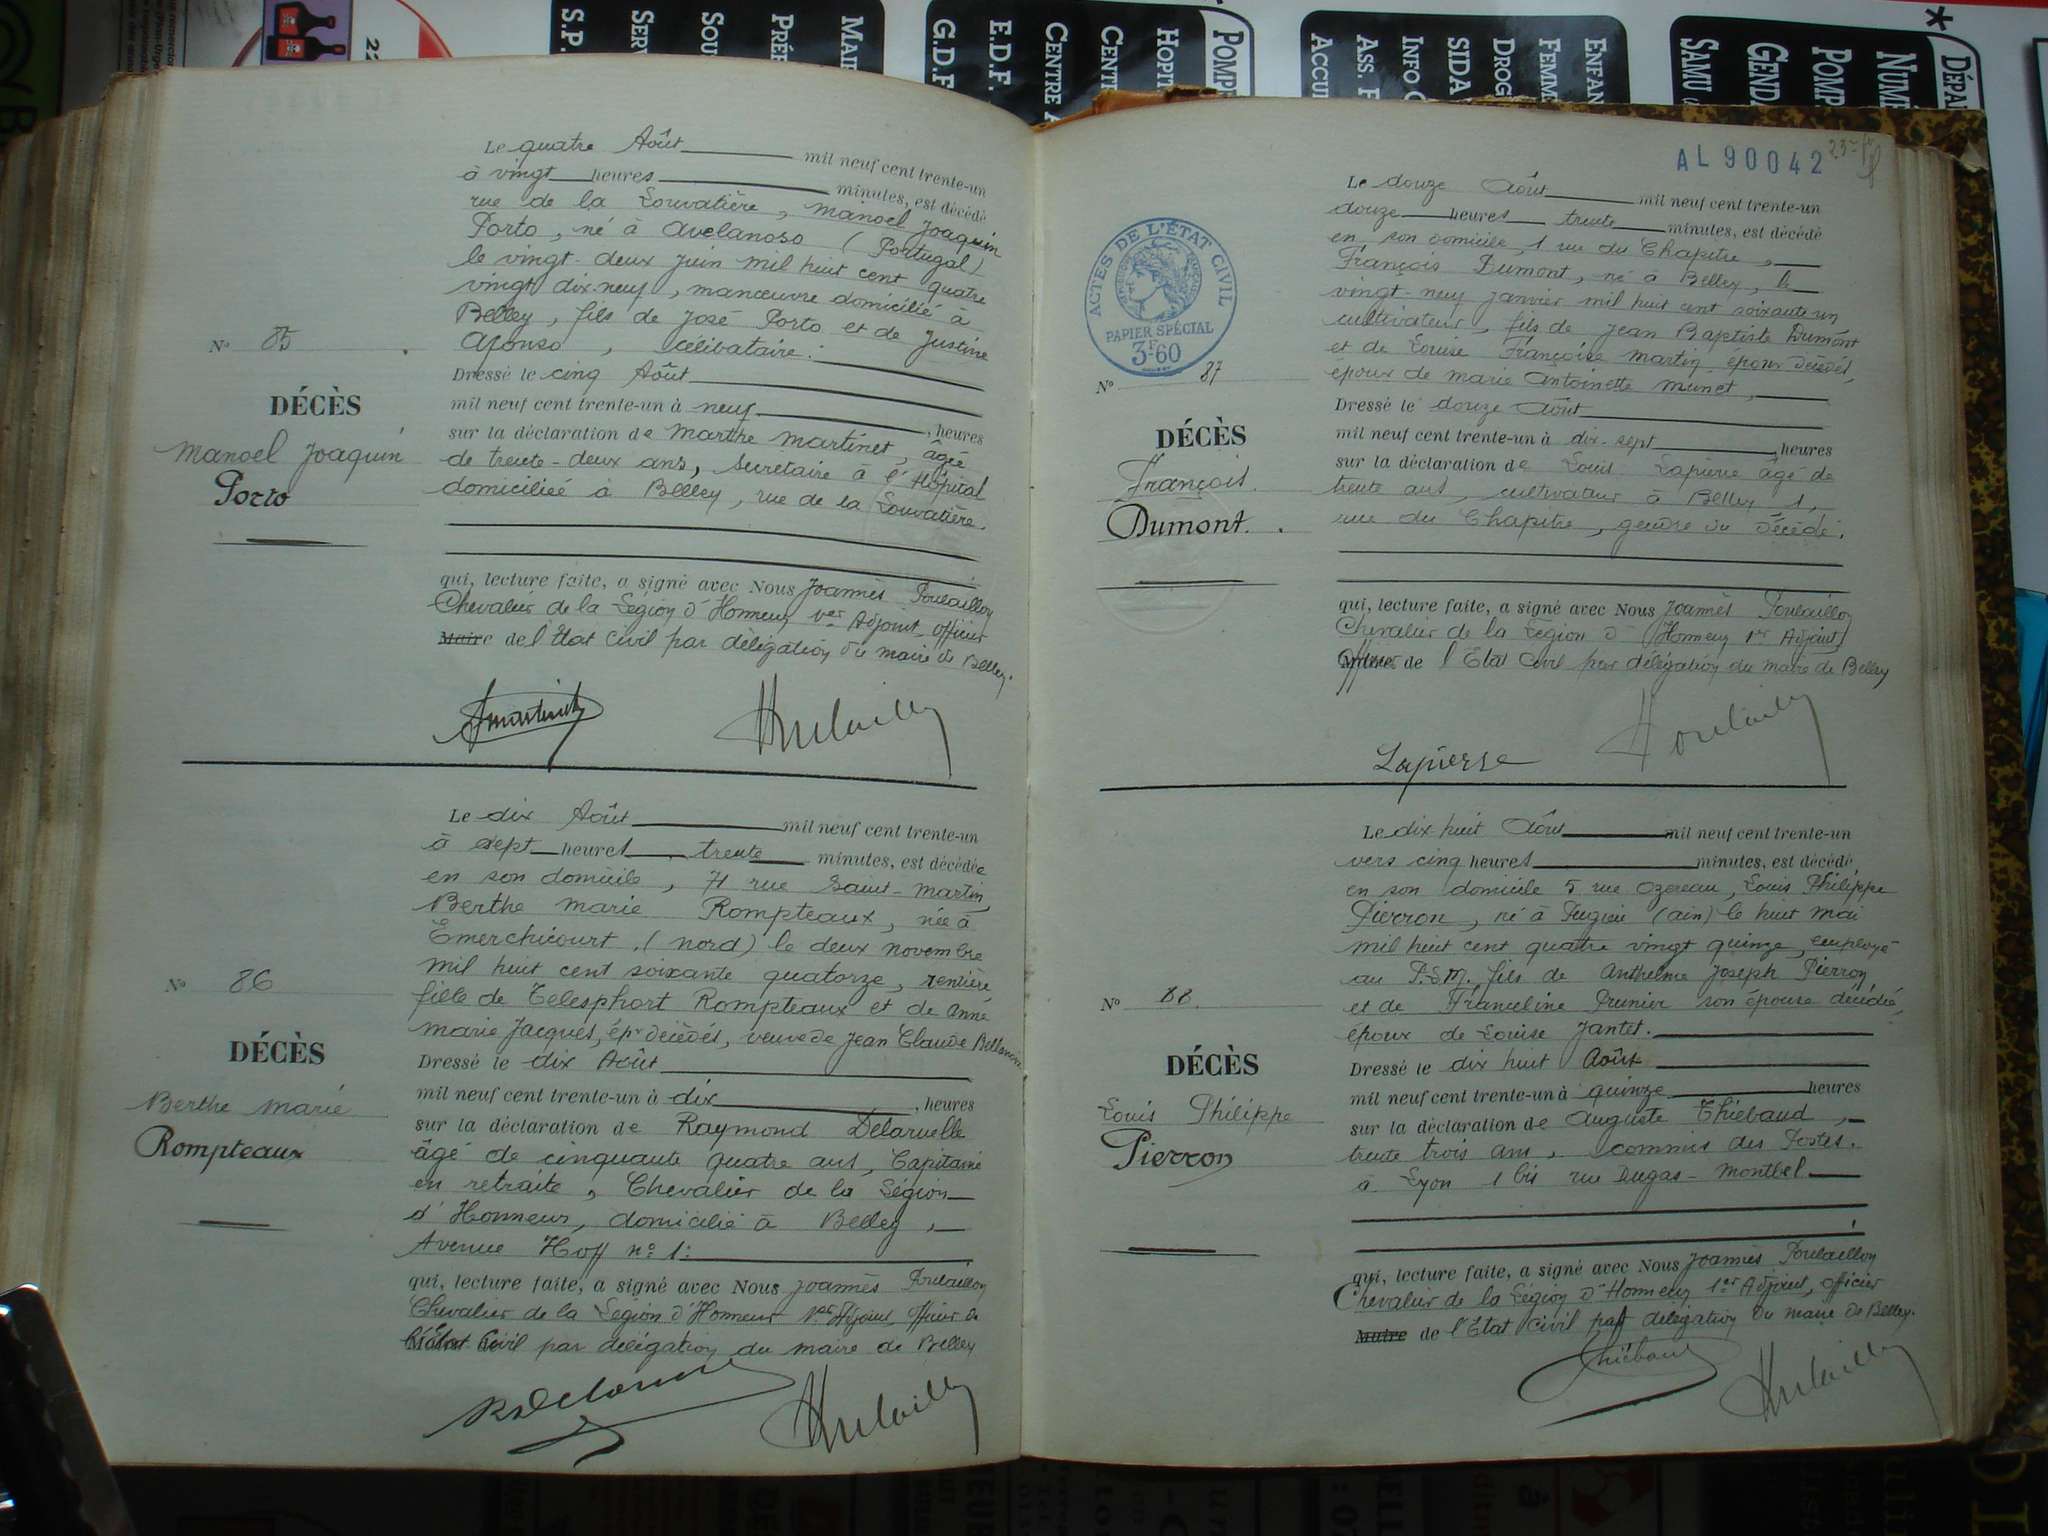 S.P.
SER
SOU
PRÉ
MAI
G.D.F.
E.D.F.
CENTRE A
CENT
HOPIT
POMP
ACCU
ASS. F
INFO
SIDA
DROG
FEMM
ENFAN
SAMU
GENDA
POMP
NUMÉ
* DÉPA
Le quatre Août mil neuf cent trente-un
à vingt heures minutes, est décédé
rue de la Louvatière, Manoel Joaquin
Porto, né à Avelanoso (Portugal)
le vingt-deux juin mil huit cent quatre
vingt dix-neuf, manœuvre domicilié à
Belley, fils de José Porto et de Justine
Afonso, célibataire.
Dressé le cinq Août
mil neuf cent trente-un à neuf, heures
sur la déclaration de Marthe Martinet, âgée
de trente-deux ans, secrétaire à l'Hôpital
domiciliée à Belley, rue de la Louvatière.
qui, lecture faite, a signé avec Nous Joannès Poulaillon
Chevalier de la Légion d'Honneur 1er Adjoint, officier
Maire de l'Etat civil par délégation du maire de Belley.
N° 85
DÉCÈS
Manoel Joaquin
Porto
Martinet
Poulaillon
Le dix Août mil neuf cent trente-un
à sept heures trente minutes, est décédée
en son domicile, 71 rue Saint-Martin
Berthe Marie Rompteaux, née à
Emerchicourt (nord) le deux novembre
mil huit cent soixante quatorze, rentière
fille de Telesphort Rompteaux et de Anne
Marie Jacques, épx décédés, veuve de Jean Claude
Dressé le dix Août
mil neuf cent trente-un à dix, heures
sur la déclaration de Raymond Delaruelle
âgé de cinquante quatre ans, Capitaine
en retraite, Chevalier de la Légion
d'Honneur, domicilié à Belley,
Avenue Hoff n° 1:
qui, lecture faite, a signé avec Nous Joannès Poulaillon
Chevalier de la Légion d'Honneur 1er Adjoint, officier de
l'Etat Civil par délégation du maire de Belley
N° 86
DÉCÈS
Berthe Marie
Rompteaux
Poulaillon
AL 90042
ACTES DE L'ÉTAT CIVIL
PAPIER SPÉCIAL
3F60
Le douze Août mil neuf cent trente-un
douze heures trente minutes, est décédé
en son domicile, 1 rue du Chapitre,
François Dumont, né à Belley, le
vingt-neuf janvier mil huit cent soixante un
cultivateur, fils de Jean Baptiste Dumont
et de Louise Françoise Martin époux décédés,
époux de Marie Antoinette Munet,
Dressé le douze Août
mil neuf cent trente-un à dix-sept, heures
sur la déclaration de Louis Lapierre âgé de
trente ans, cultivateur à Belley 1,
rue du Chapitre, gendre du décédé.
qui, lecture faite, a signé avec Nous Joannès Poulaillon
Chevalier de la Légion d'Honneur 1er Adjoint
Officier de l'Etat Civil par délégation du maire de Belley
N° 87
DÉCÈS
François
Dumont.
Lapierre
Poulaillon
Le dix huit Août mil neuf cent trente-un
vers cinq heures minutes, est décédé,
en son domicile 5 rue Ozereau, Louis Philippe
Pierron, né à Pugieu (ain) le huit mai
mil huit cent quatre vingt quinze, employé
au P.L.M. fils de Anthelme Joseph Pierron
et de Franceline Prunier son épouse décédée,
époux de Louise Jantet.
Dressé le dix huit Août
mil neuf cent trente-un à quinze heures
sur la déclaration de Auguste Thiébaud,
trente trois ans, commis des Postes.
à Lyon 1 bis rue Dugas-Montbel
qui, lecture faite, a signé avec Nous Joannès Poulaillon
Chevalier de la Légion d'Honneur 1er Adjoint, officier
Maire de l'Etat civil par délégation du maire de Belley.
N° 88.
DÉCÈS
Louis Philippe
Pierron
Thiébaud
Poulaillon